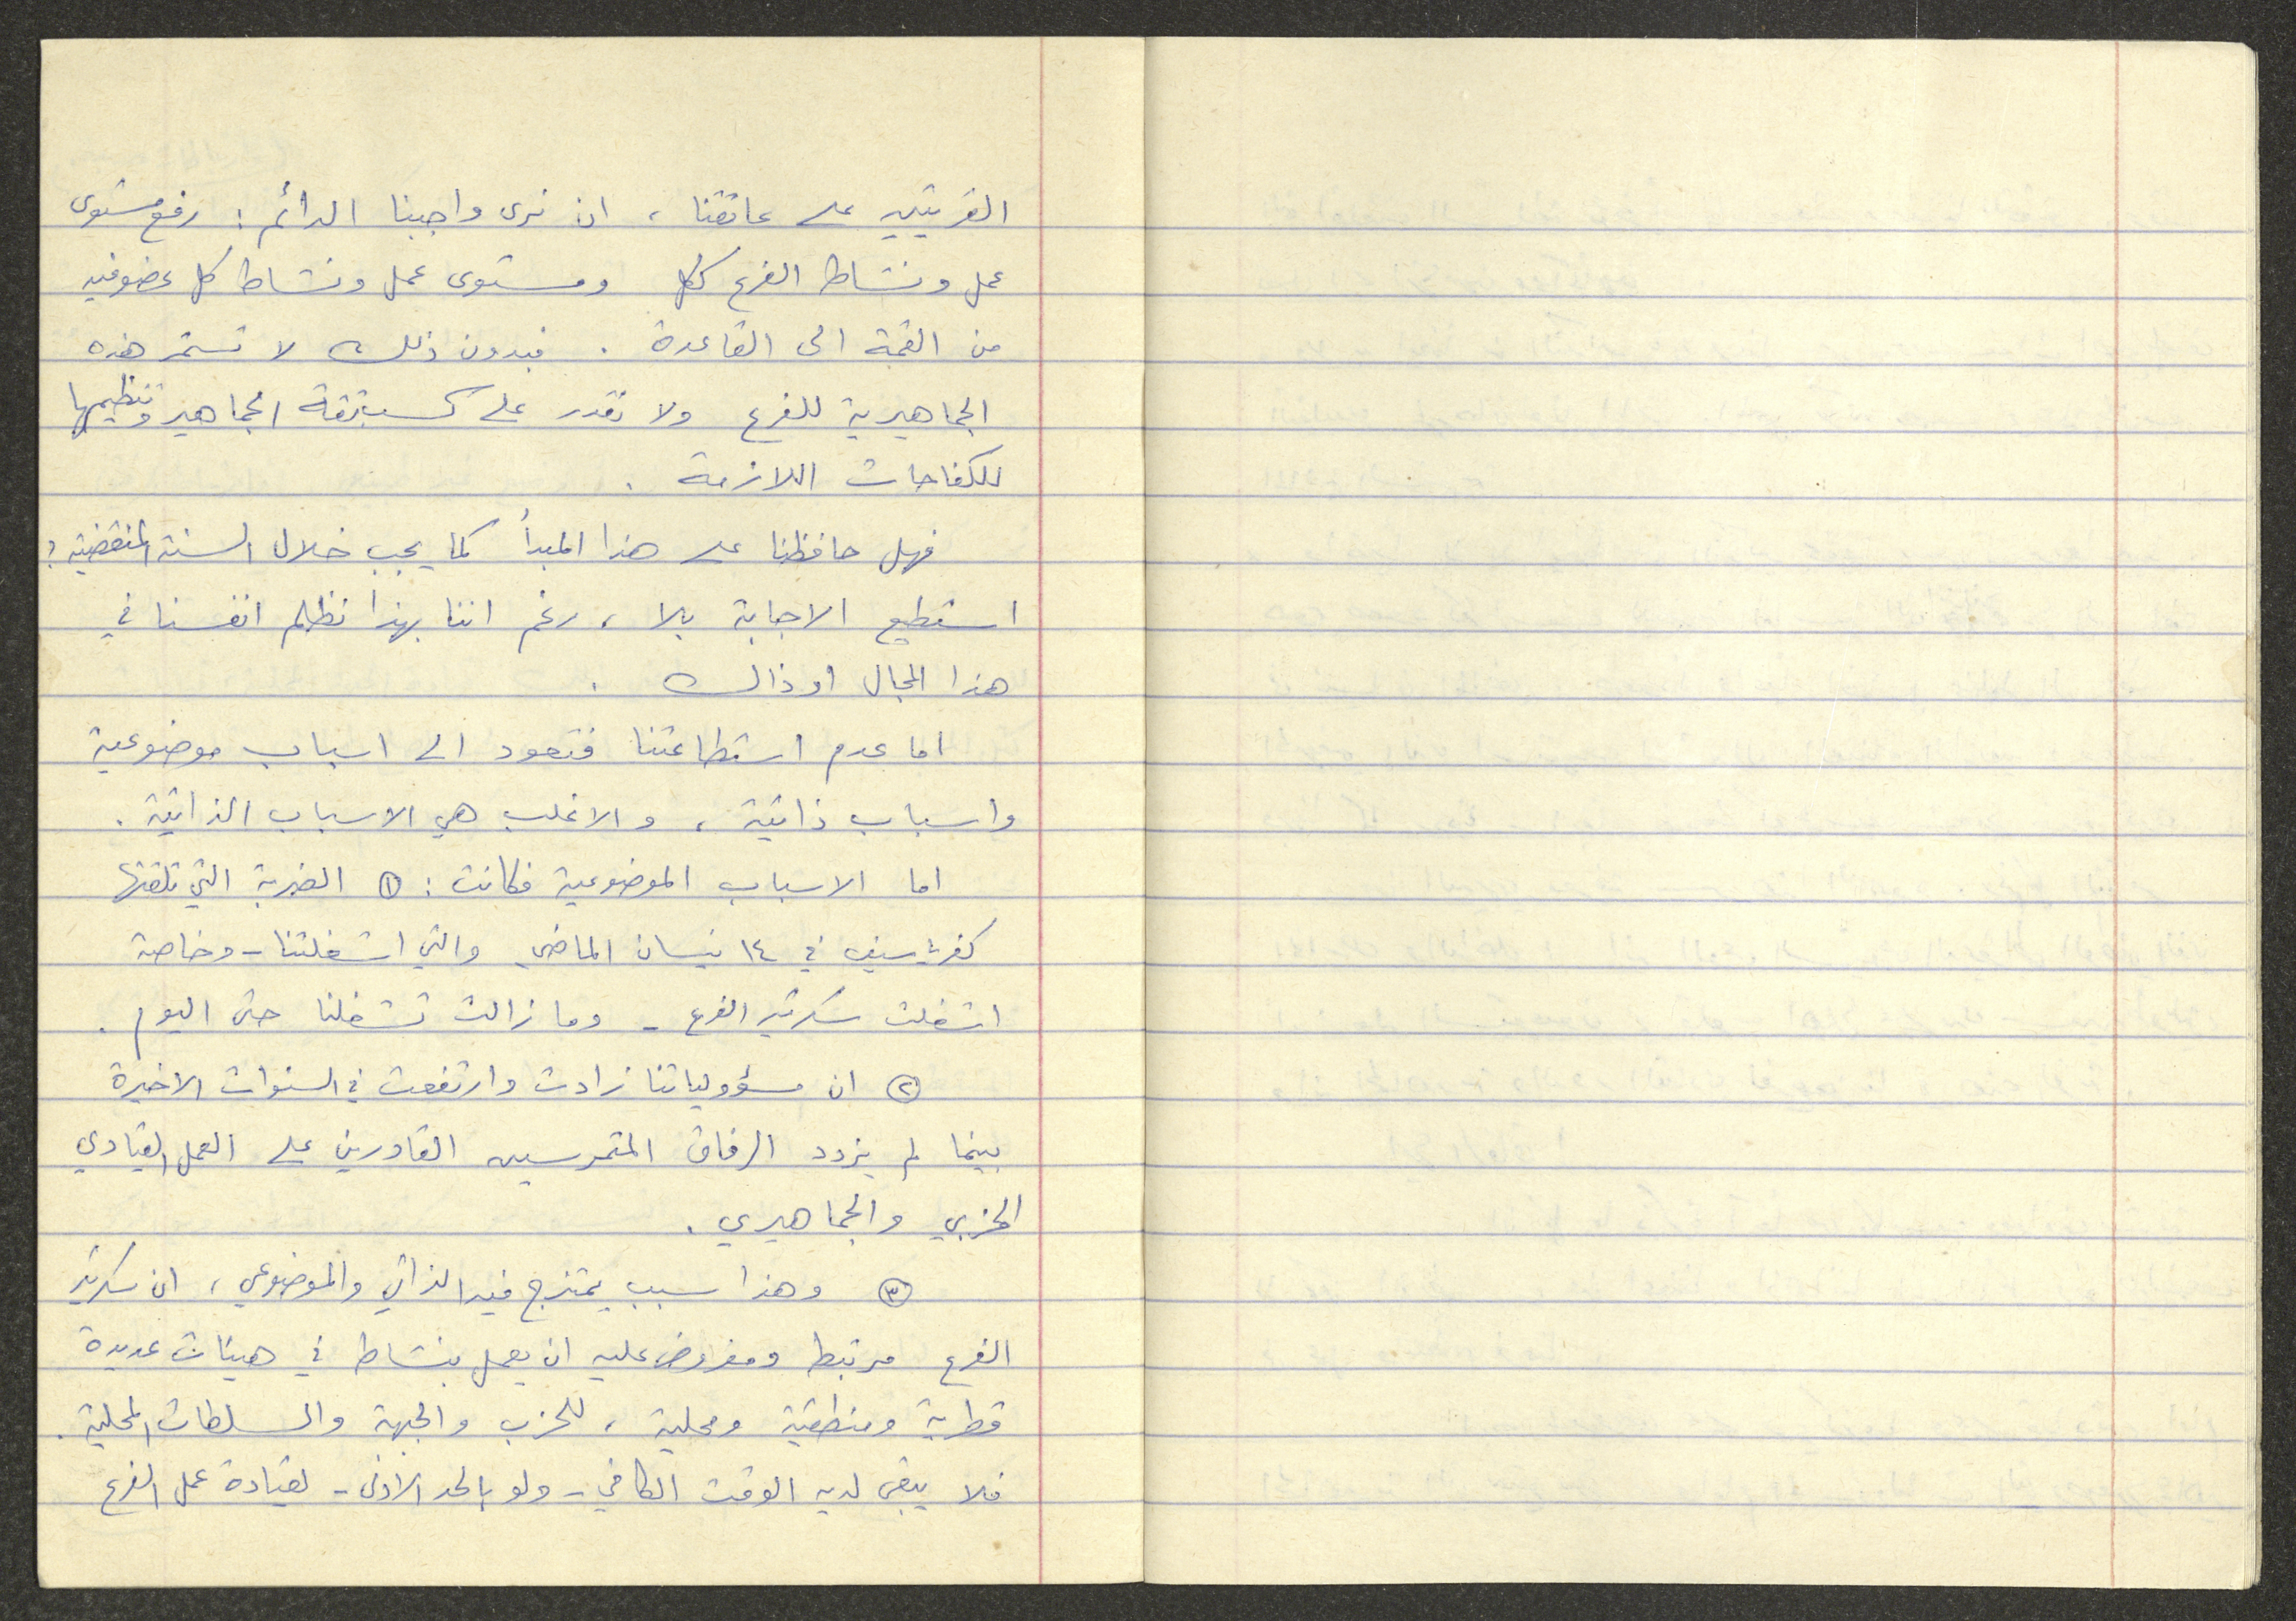 القريتين على عاتقنا ، ان نرى واجبنا الدائم : رفع مستوى
عمل ونشاط الفرع ككل ومستوى عمل ونشاط كل عضو فيه
من القمة الى القاعدة . فبدون ذلك لا تستمر هذه
الجماهيرية للفرع ولا نقدر على كسب ثقة الجماهير وتنظيمها
للكفاحات اللازمة .
فهل حافظنا على هذا المبدأ كما يجب خلال السنة المنقضية ؟
استطيع الاجابة بلا ، رغم اننا بهذا نظلم انفسنا في
هذا المجال او ذالك .
اما عدم استطاعتنا فتعود الى اسباب موضوعية
واسباب ذاتية ، والاغلب هي الاسباب الذاتية .
اما الاسباب الموضوعية فكانت : ① الضربة التي تلقتها
كفرياسيف في ١٤ نيسان الماضي والتي اشغلتنا - وخاصة
اشغلت سكرتير الفرع - وما زالت تشغلنا حتى اليوم .
② ان مسؤولياتنا زادت وارتفعت في السنوات الاخيرة
بينما لم يزدد الرفاق المتمرسين القادرين على العمل القيادي
الحزبي والجماهيري .
③ وهذا سبب يمتزج فيه الذاتي والموضوعي ، ان سكرتير
الفرع مرتبط ومفروض عليه ان يعمل بنشاط في هيئات عديدة
قطرية ومنطقية ومحلية ، للحزب والجبهة والسلطات المحلية .
فلا يبقى لديه الوقت الكافي - ولو بالحد الادنى - لقيادة عمل الفرع